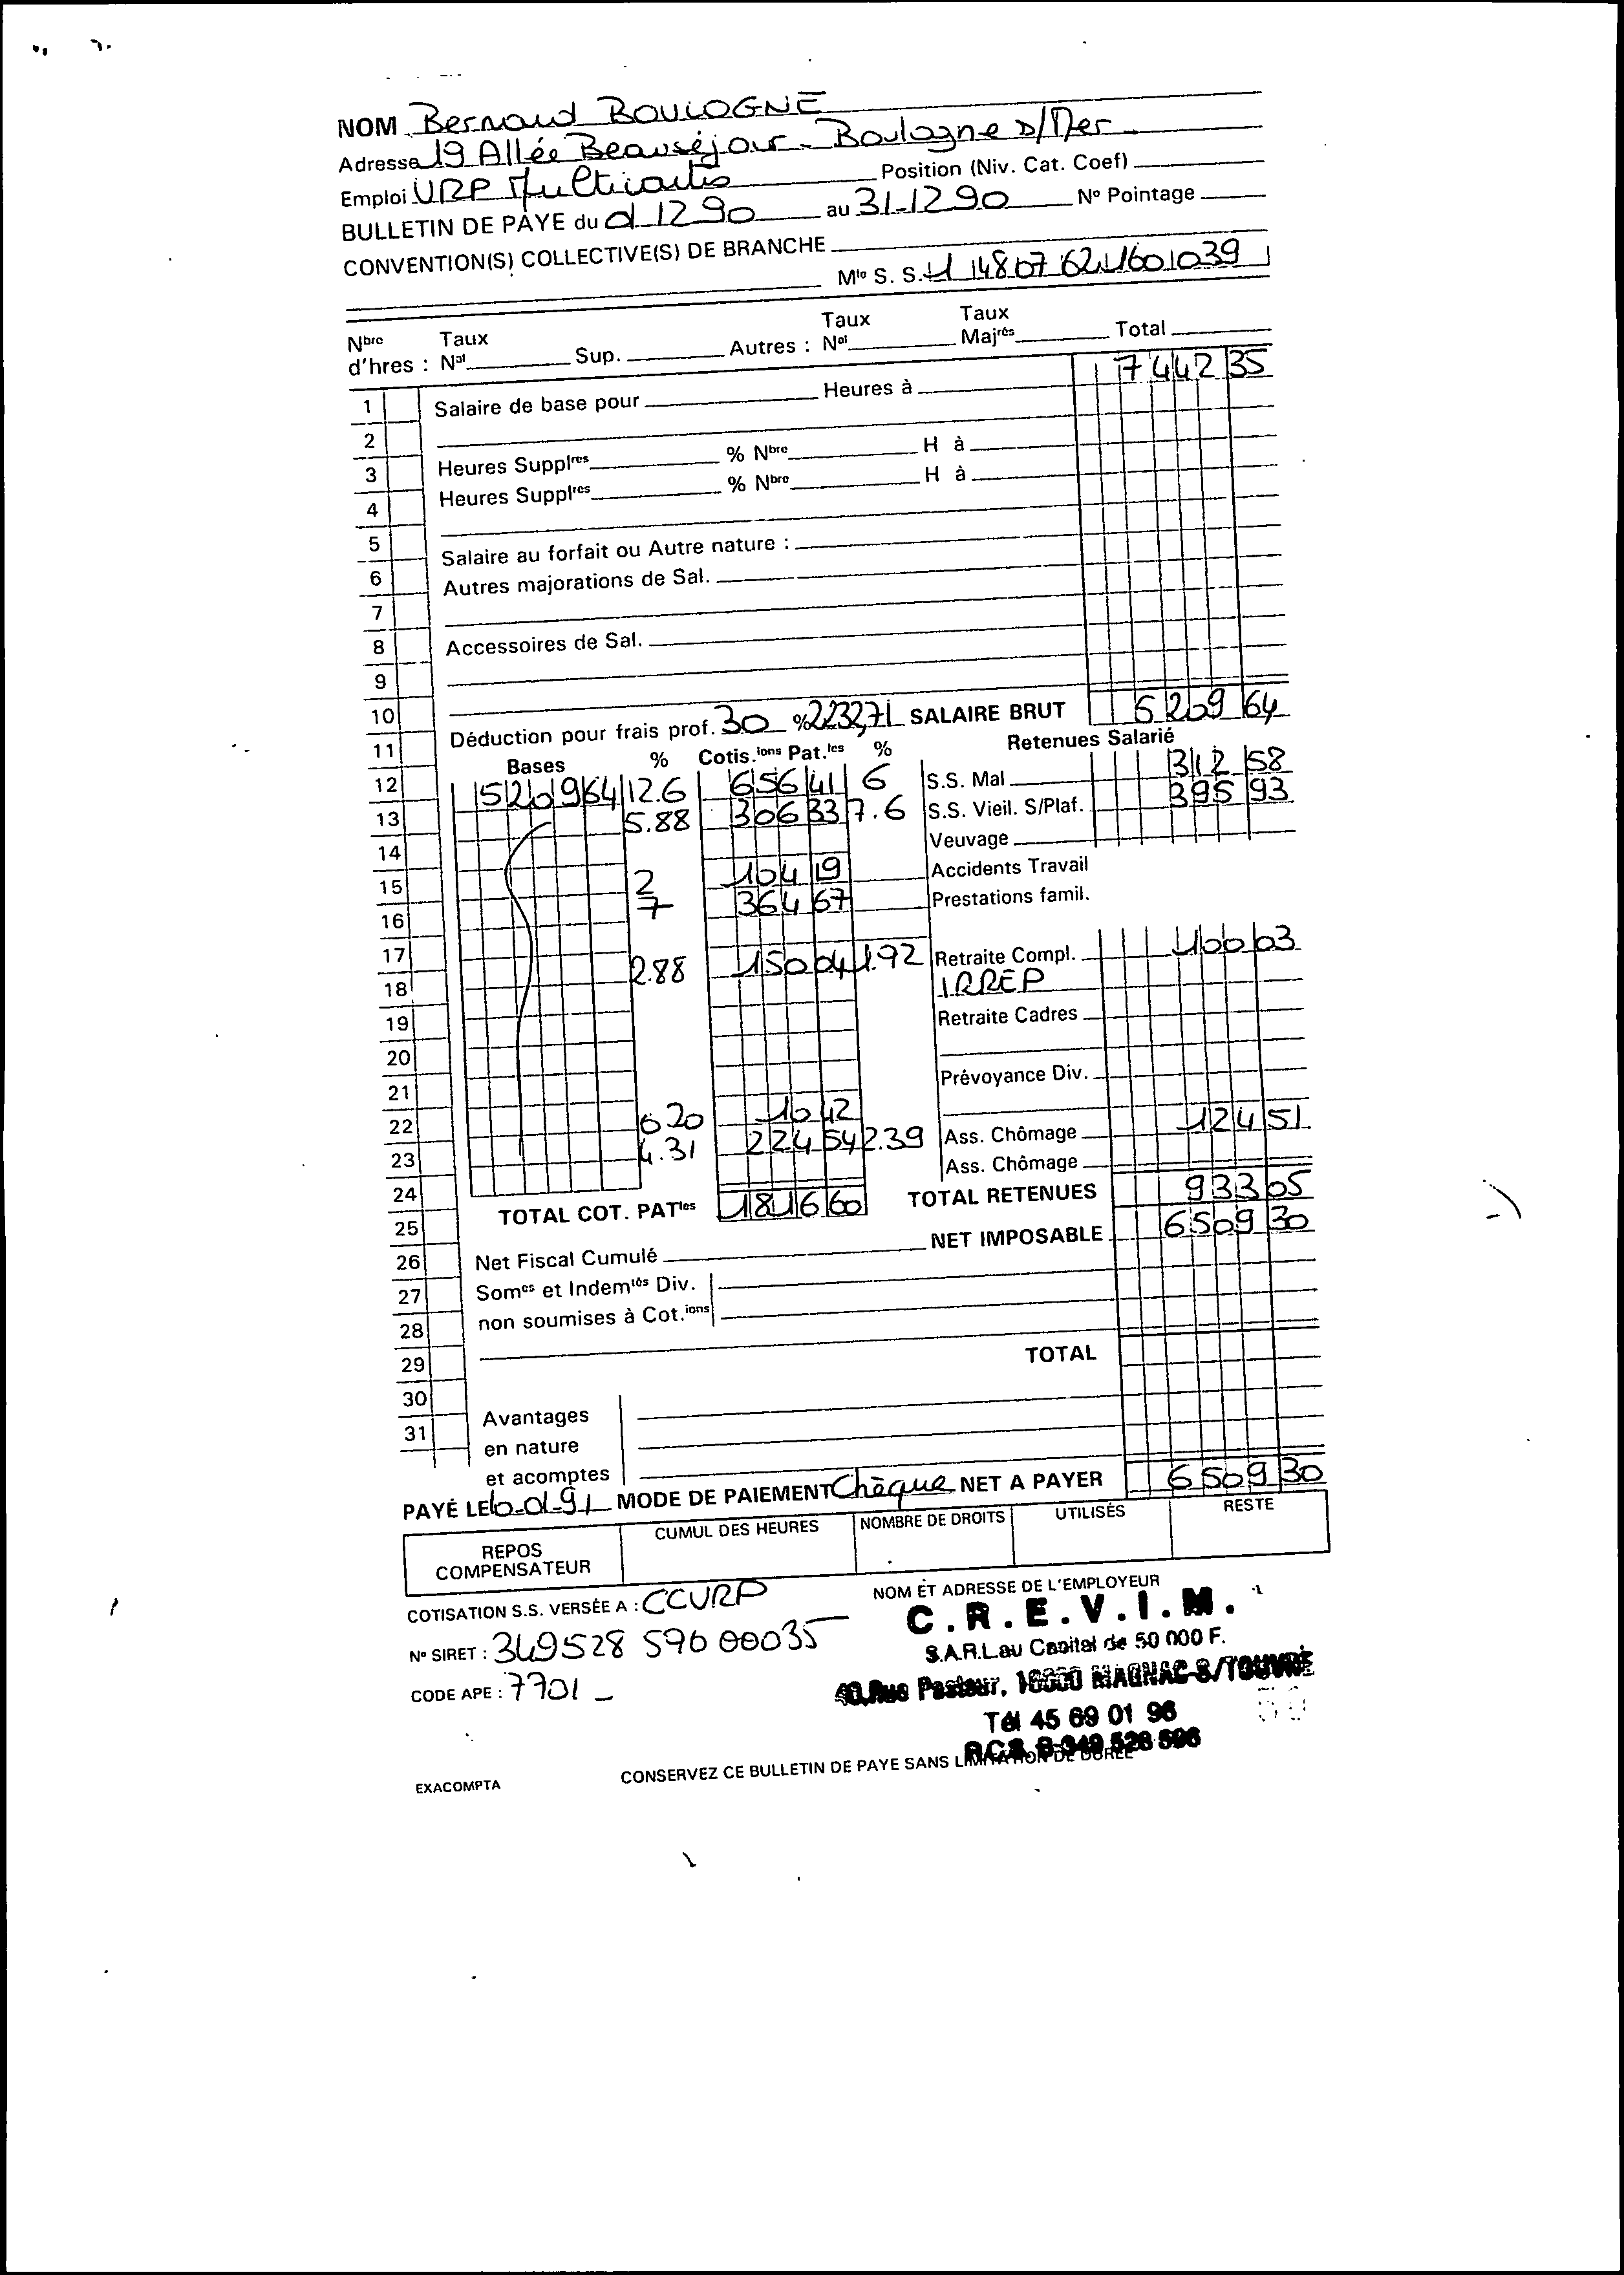 NOM Bernard BOULOGNE
Adresse 19 Allée Beauséjour - Boulogne s/Mer
Emploi VRP Multicartes Position (Niv. Cat. Coef)
BULLETIN DE PAYE du 01 12 90 au 31-12 90 Nº Pointage
CONVENTION(S) COLLECTIVE(S) DE BRANCHE
Mle S. S. 1 48 07 62 160 039
Nbre d'hres : Taux Nal Sup. Autres : Taux Nal Taux Majrés Total
1 Salaire de base pour Heures à 7 442 35
2
3 Heures Supplres % Nbre H à
4 Heures Supplres % Nbre H à
5 Salaire au forfait ou Autre nature :
6 Autres majorations de Sal.
7
8 Accessoires de Sal.
9
10
11 Déduction pour frais prof. 30 % 2232,71 SALAIRE BRUT 5 209 64
Bases % Cotis.ions Pat.les % Retenues Salarié
12 5209 64 12.6 656 41 6 S.S. Mal 312 58
13 5.88 306 33 7.6 S.S. Vieil. S/Plaf. 395 93
14 Veuvage
15 2 104 19 Accidents Travail
16 7 364 67 Prestations famil.
17 2.88 150 04 1.92 Retraite Compl. 100 03
18 IRREP
19 Retraite Cadres
20
21 Prévoyance Div.
22 0.20 10 42
23 4.31 224 54 2.39 Ass. Chômage 124 51
Ass. Chômage
24 TOTAL COT. PATles 1816 60 TOTAL RETENUES 933 05
25 NET IMPOSABLE 6509 30
26 Net Fiscal Cumulé
27 Somes et Indemtés Div.
28 non soumises à Cot.ions
29 TOTAL
30 Avantages
31 en nature
et acomptes
PAYÉ LE 10-01-91 MODE DE PAIEMENT Chèque NET A PAYER 6 509 30
REPOS COMPENSATEUR CUMUL DES HEURES NOMBRE DE DROITS UTILISÉS RESTE
COTISATION S.S. VERSÉE A : CCVRP
Nº SIRET : 349528 596 00035
CODE APE : 7701
NOM ET ADRESSE DE L'EMPLOYEUR
C.R.E.V.I.M.
S.A.R.L. au Capital de 50 000 F.
40, Rue Pasteur, 16600 MAGNAC-S/TOUVRE
Tél 45 69 01 96
R.C.S. B 349 528 596
EXACOMPTA CONSERVEZ CE BULLETIN DE PAYE SANS LIMITATION DE DURÉE